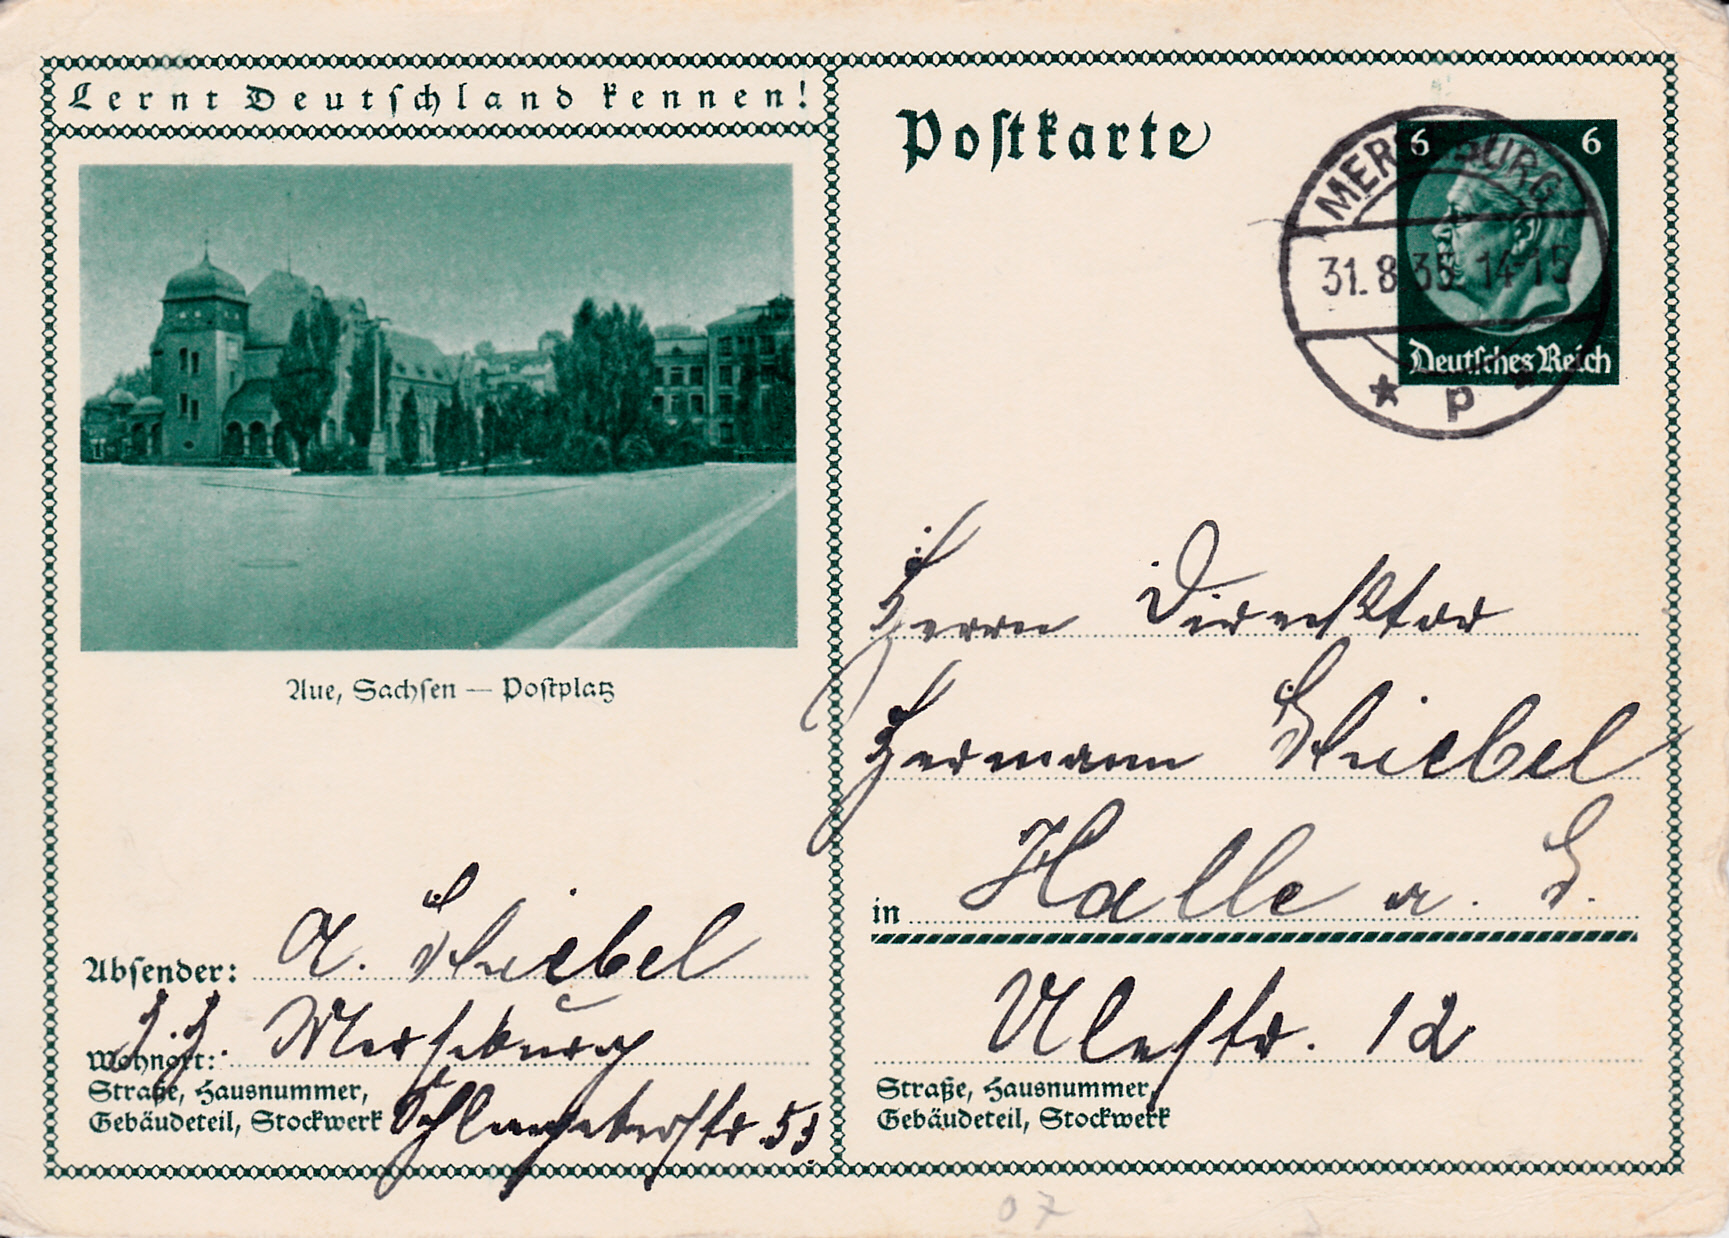 Lernt Deutschland kennen!
Aue, Sachsen — Postplatz
Absender: A. Stiebel
Wohnort: z. Z. Merseburg
Straße, Hausnummer,
Gebäudeteil, Stockwerk Schlageterstr. 53
Postkarte
6 6
Deutsches Reich
MERSEBURG
31.8.35. 14-15
* p *
Herrn Direktor
Hermann Stiebel
in Halle a. S.
Ulestr. 12
Straße, Hausnummer,
Gebäudeteil, Stockwerk
07